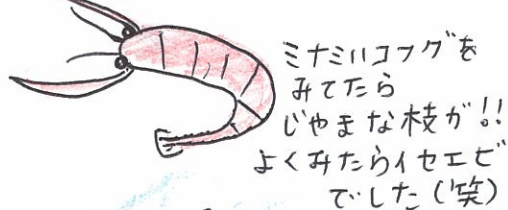 ミナミハコフグを
みてたら
じゃまな枝が!!
よくみたらイセエビ
でした(笑)